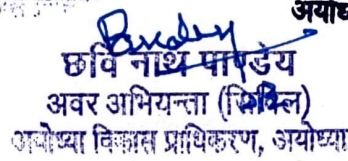 अयोध्य
Pandey
छवि नाथ पाण्डेय
अवर अभियन्ता (सिविल)
अयोध्या विकास प्राधिकरण, अयोध्या